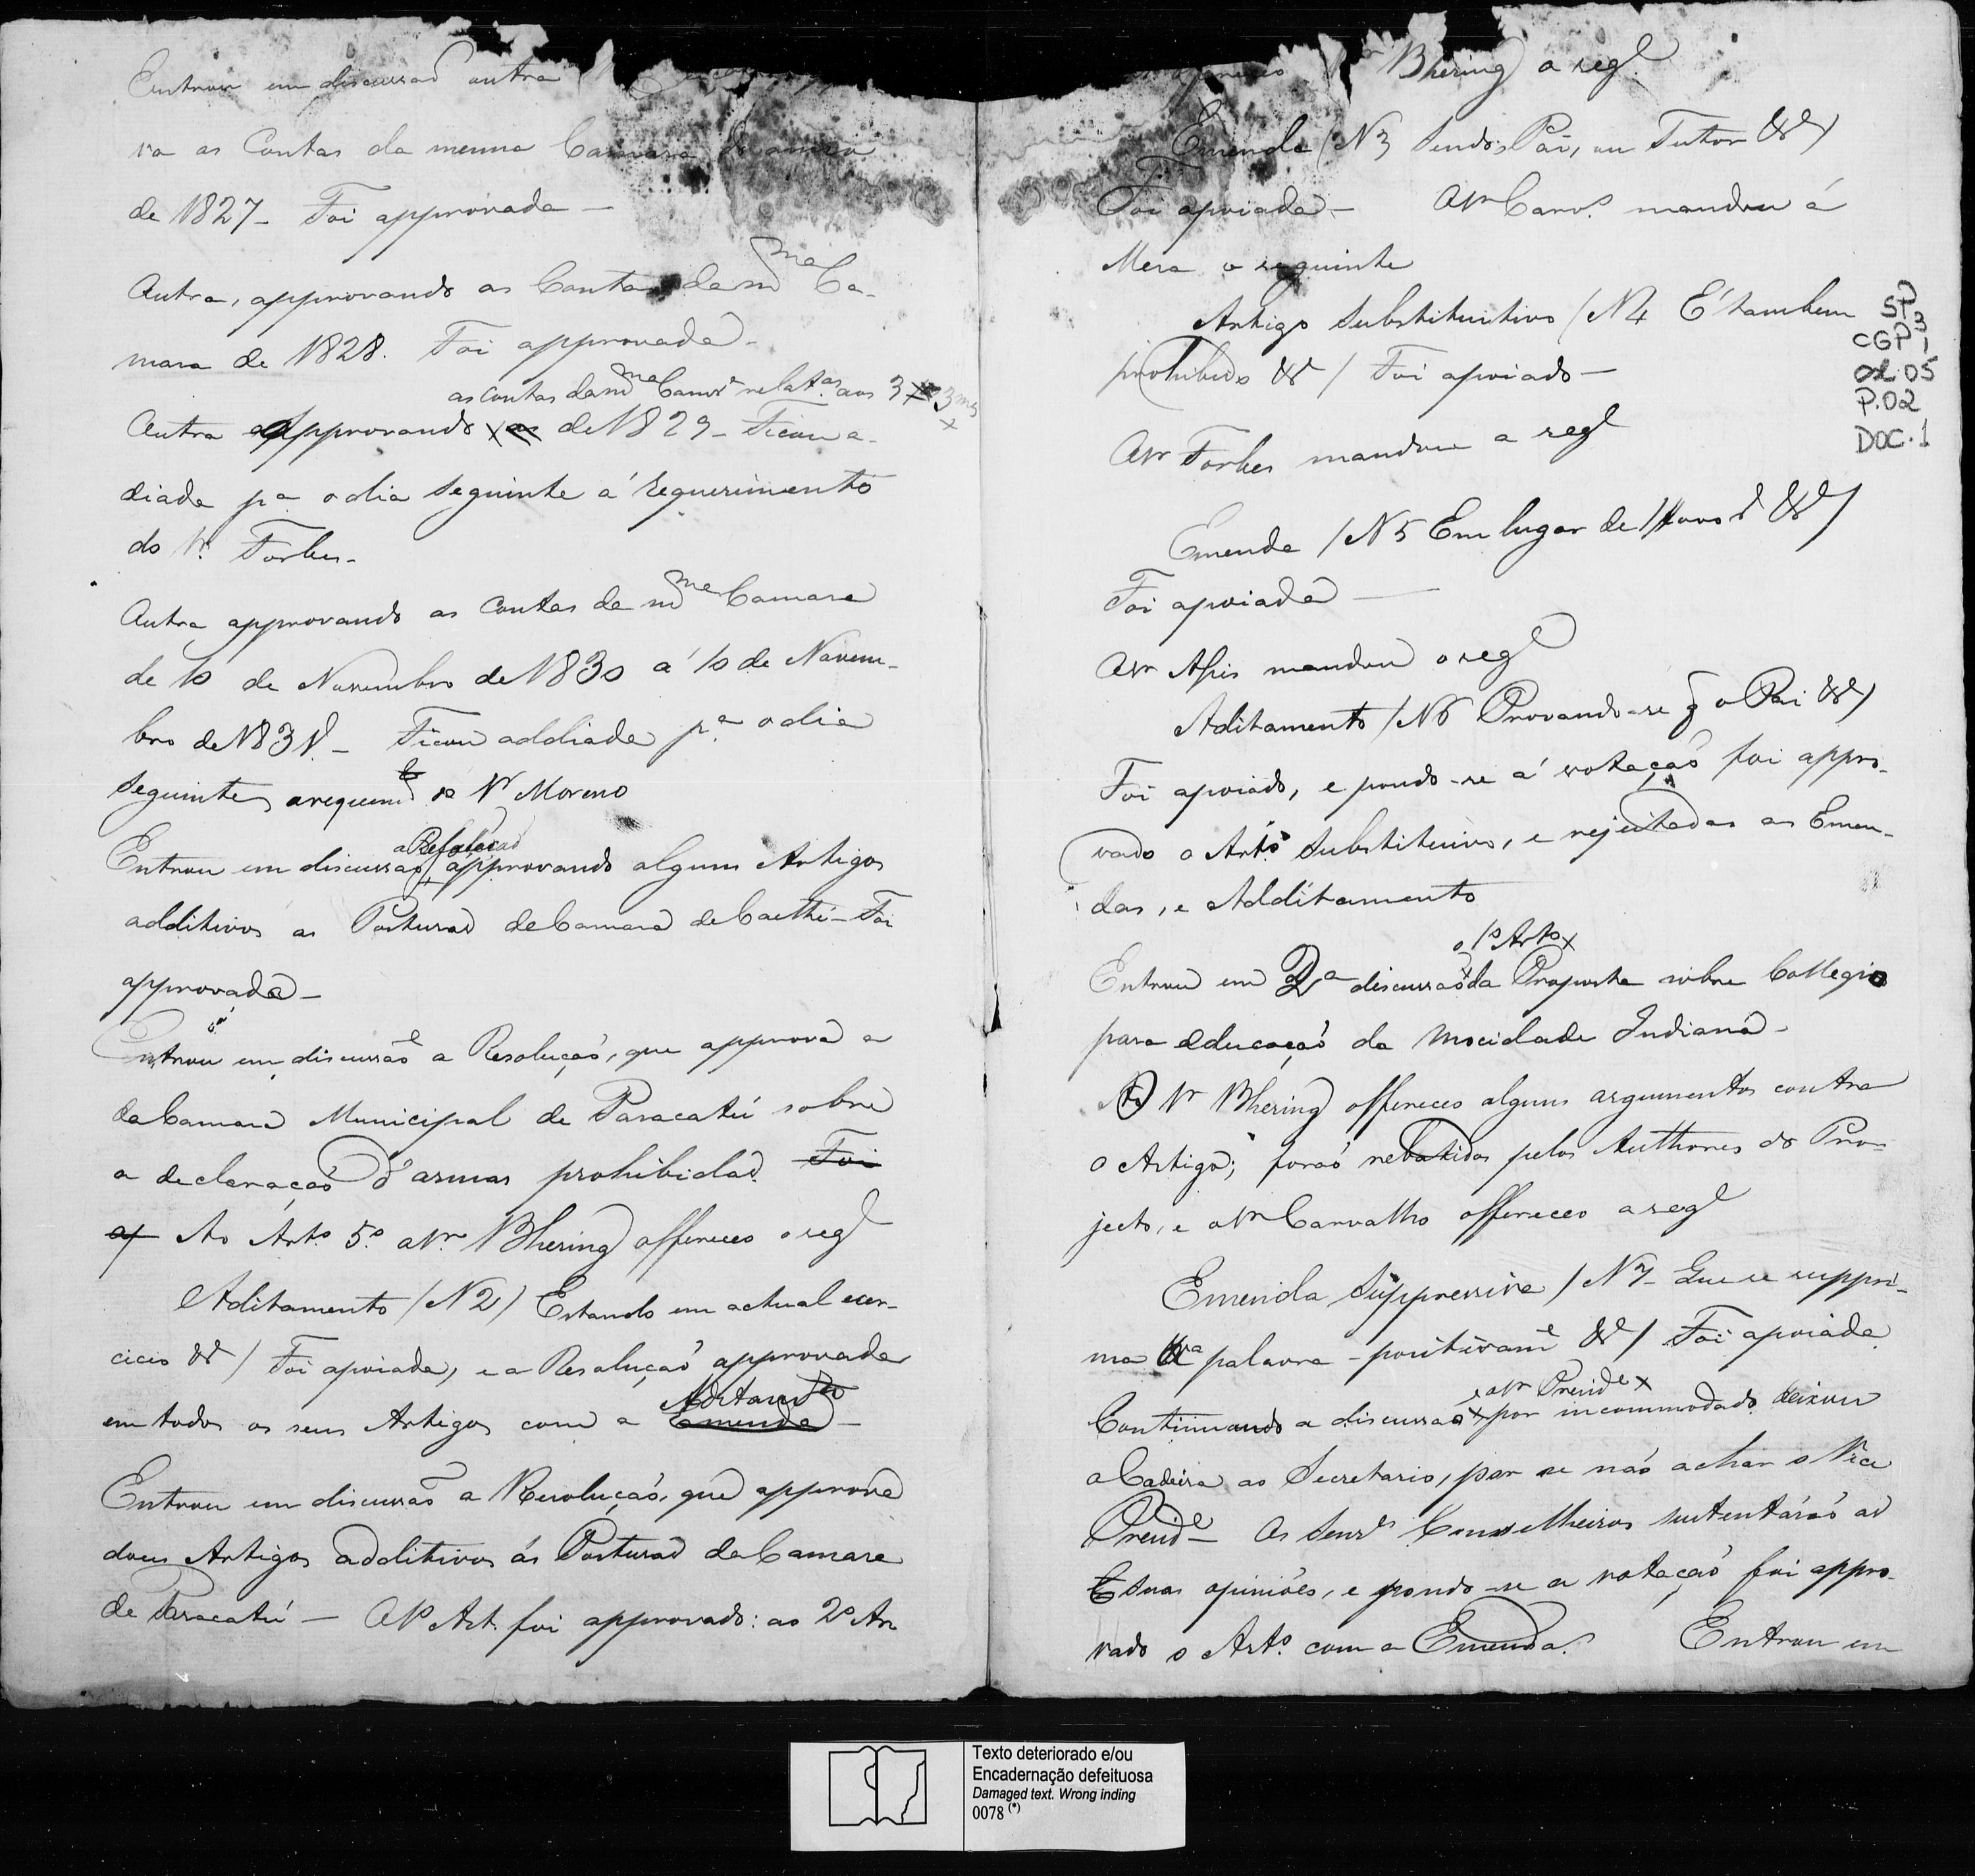 Entrou em discussaõ outra
va as Contas da mesma Camara do anno
de 1827 - Foi approvada -
Outra, approvando as Contas da mma Ca-
mara de 1828. Foi approvada -
as contas da mma Camra relatas aos 3
Outra approvando de 1829 - Ficou a-
diada pa o dia seguinte á requerimento
do Sr. Forbes -
Outra approvando as contas da mma Camara
de 10 de Novembro de 1830 á 10 de Novem-
bro de 1831 - Ficou addiada pa o dia
seguinte a requerimto do Sr Moreno
a Resoluçaõ
Entrou em discussaõ approvando alguns Artigos
additivos as Posturas da Camara de Caethé - Foi
approvada -
Entrou em discussaõ a Resoluçaõ, que approva a
da Camara Municipal de Paracatú sobre
a declaraçaõ d'armas prohibidas. Foi
Ao Arto. 5o. o Sr. Bhering offereceo o segl
Aditamento (N 2) Estando em actual exer-
cicio &) Foi apoiada, e a Resoluçaõ approvada
Aditamto
em todos os seus Artigos com a Emenda -
Entrou em discussaõ a Resoluçaõ, que approva
dous Artigos additivos ás Posturas da Camara
de Paracatú - O 1o Art. foi approvado: ao 2o Ar
Bhering a segl
Emenda (N 3 Sendo Pai, ou Tutor &)
Foi apoiada - O Sr Carvo. mandou á
Mesa o seguinte
Artigo Substitutivo (N 4 É tambem
prohibido &) Foi apoiado -
O Sr Forbes mandou a segl
Emenda (N 5 Em lugar de &)
Foi apoiada -
O Sr Assis mandou o segl
Aditamento (N 6 Provando-se q o Pai &)
Foi apoiado, e pondo-se á votaçaõ foi appro-
vado o Arto. Substitutivo, e rejeitadas as Emen-
das, e Additamento
o 1o Arto
Entrou em 2a discussaõ da Proposta sobre Collegio
para educaçaõ da Mocidade Indiana -
O Sr Bhering offereceo alguns argumentos contra
o Artigo; foraõ rebatidos pelos Authores do Pro-
jecto, e o Sr Carvalho offereceo a segl
Emenda Suppressiva (N 7 - Que se suppri-
ma a palavra - positivame &) Foi apoiada
e o Sr Preside
Continuando a discussaõ por incommodado deixou
a Cadeira ao Secretario, por se naõ achar o Vice
Preside - Os Senrs Conselheiros sustentáraõ as
suas opiniões, e pondo-se a votaçaõ foi appro-
vado o Arto. com a Emenda. Entrou em
SP
CGP 1
cx. 05
P. 02
DOC. 1
Texto deteriorado e/ou
Encadernação defeituosa
Damaged text. Wrong inding
0078 (*)